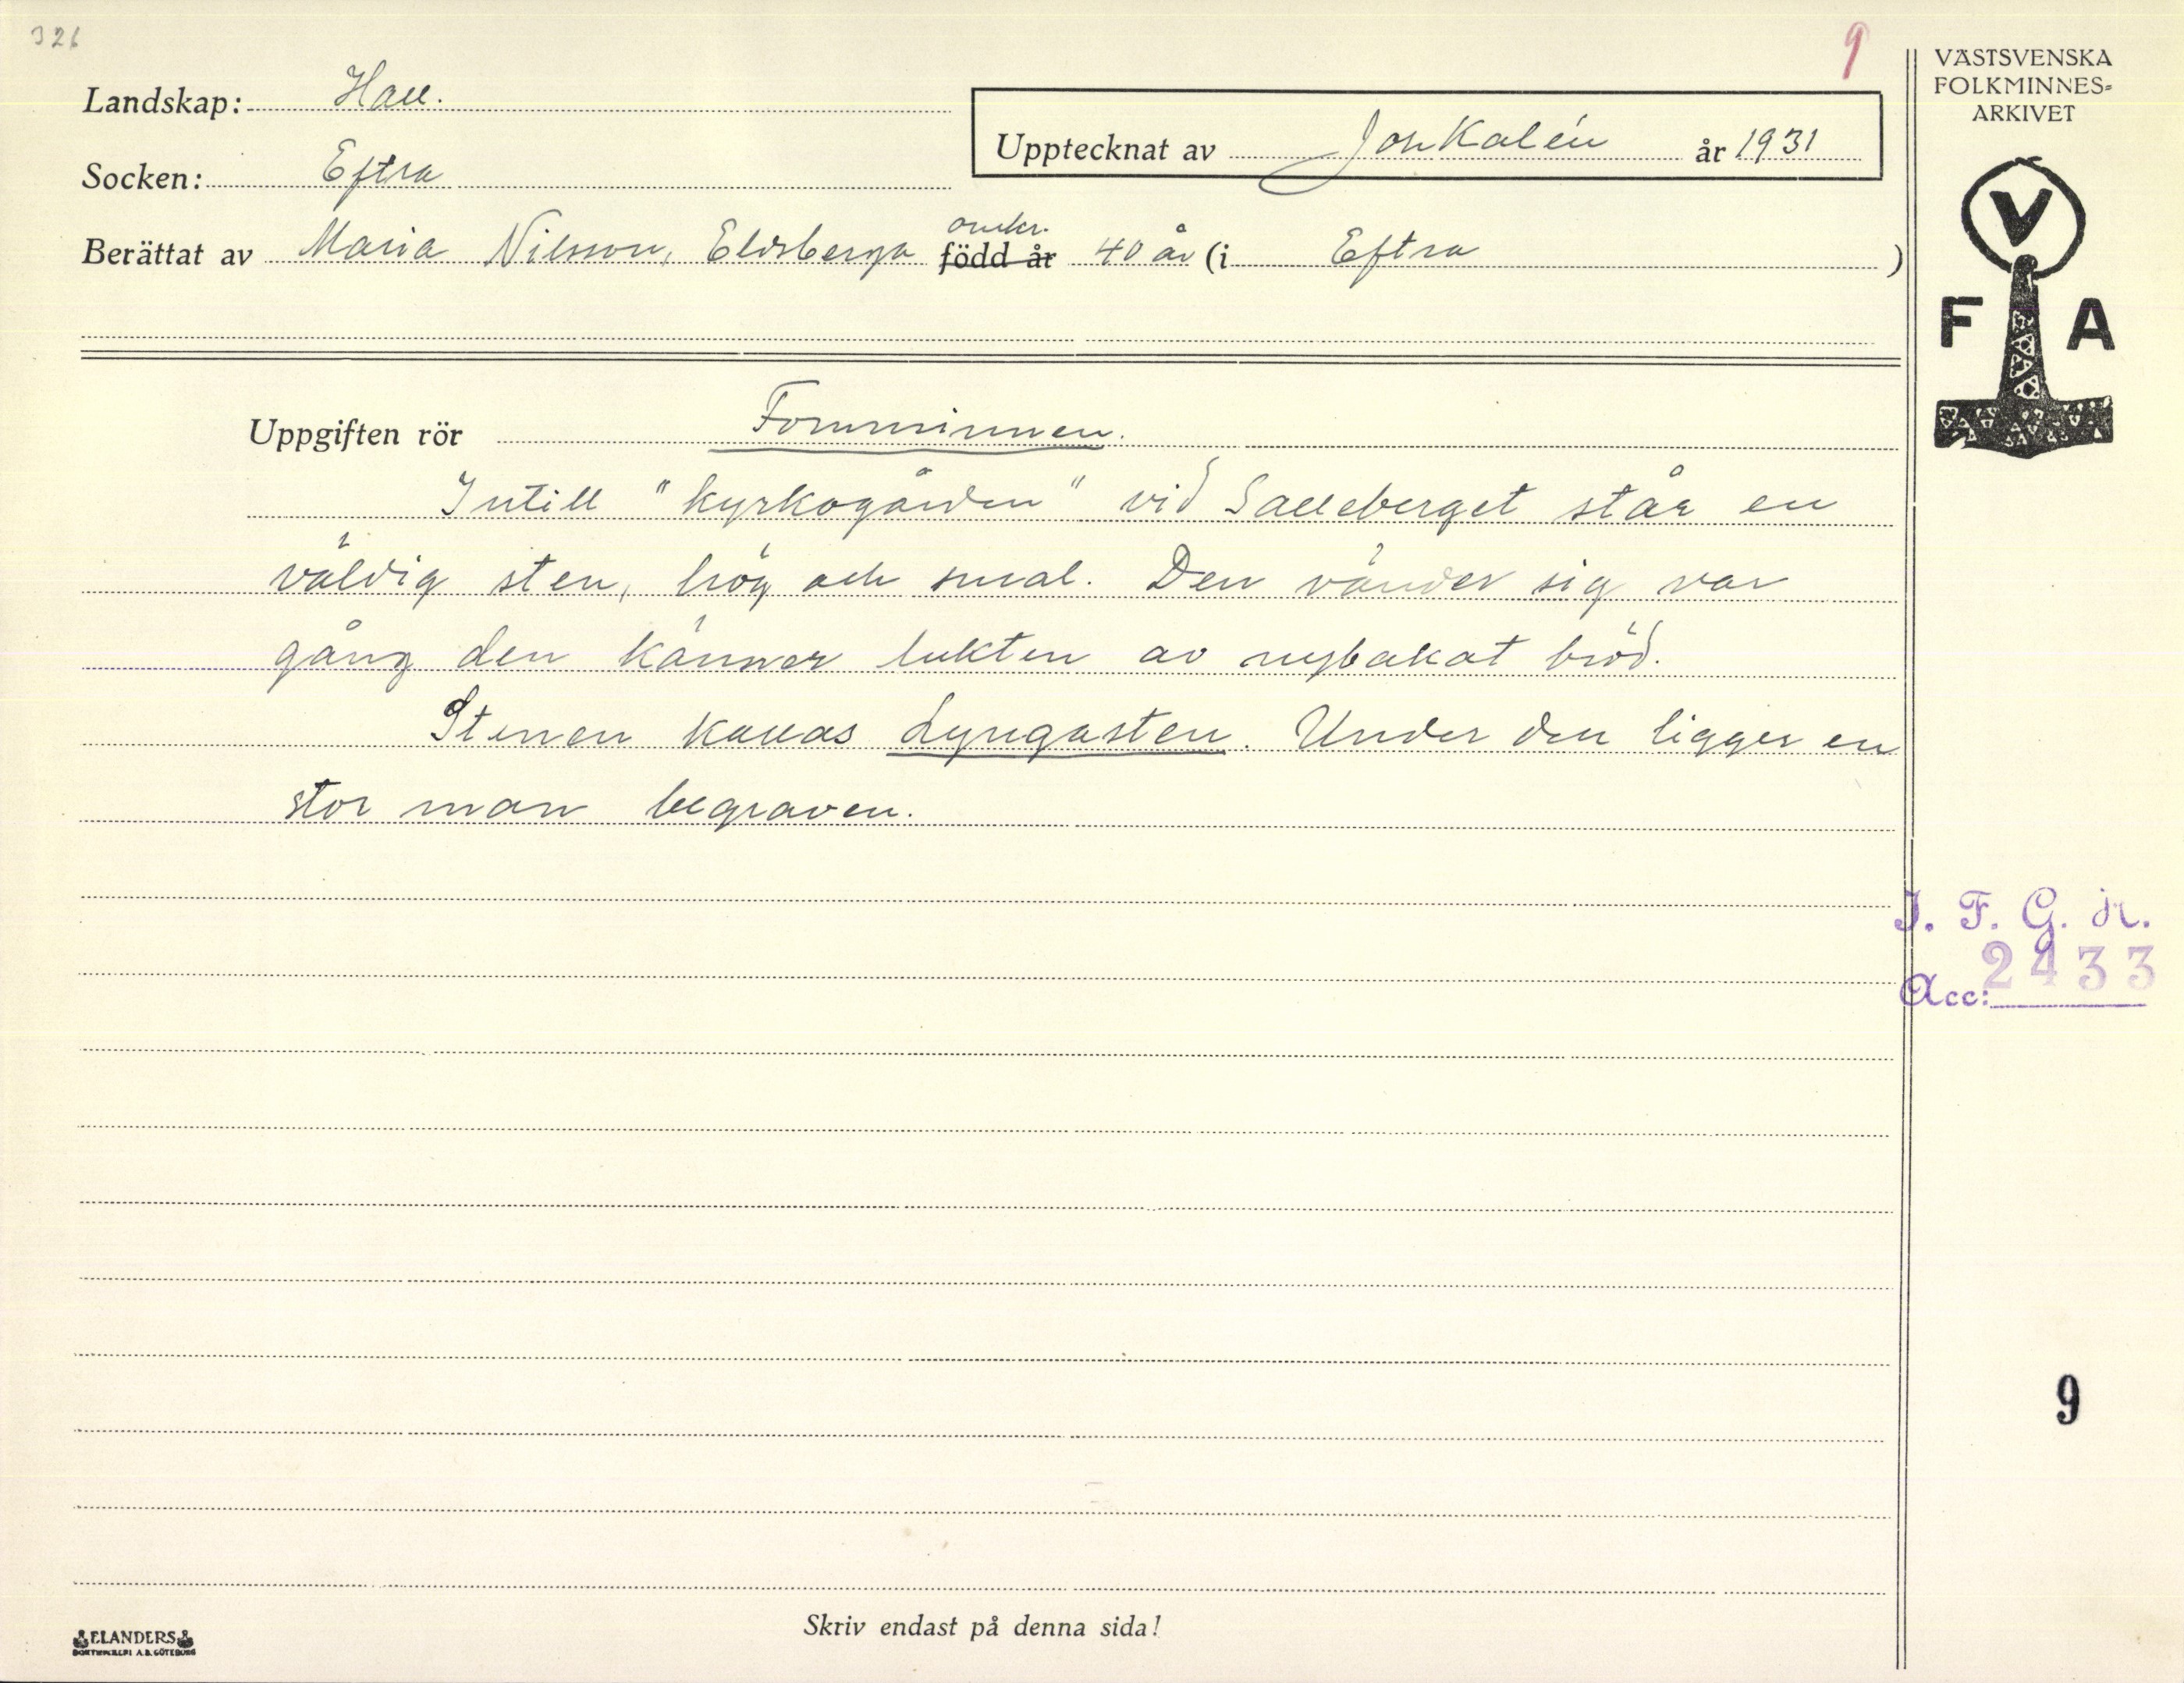 326
9
VÄSTSVENSKA
FOLKMINNES-
ARKIVET
Landskap: Hall.
Upptecknat av Joh Kalén år 1931
Socken: Eftra
omkr.
Berättat av Maria Nilsson, Eldsberga född år 40 år (i Eftra )
V
F A
Uppgiften rör Fornminnen.
Intill "kyrkogården" vid Salleberget står en
väldig sten, hög och smal. Den vänder sig var
gång den känner lukten av nybakat bröd.
Stenen kallas Lyngasten. Under den ligger en
stor man begraven.
I. F. G. K.
2433
Acc:
9
Skriv endast på denna sida!
ELANDERS
BOKTRYCKERI A.B. GÖTEBORG